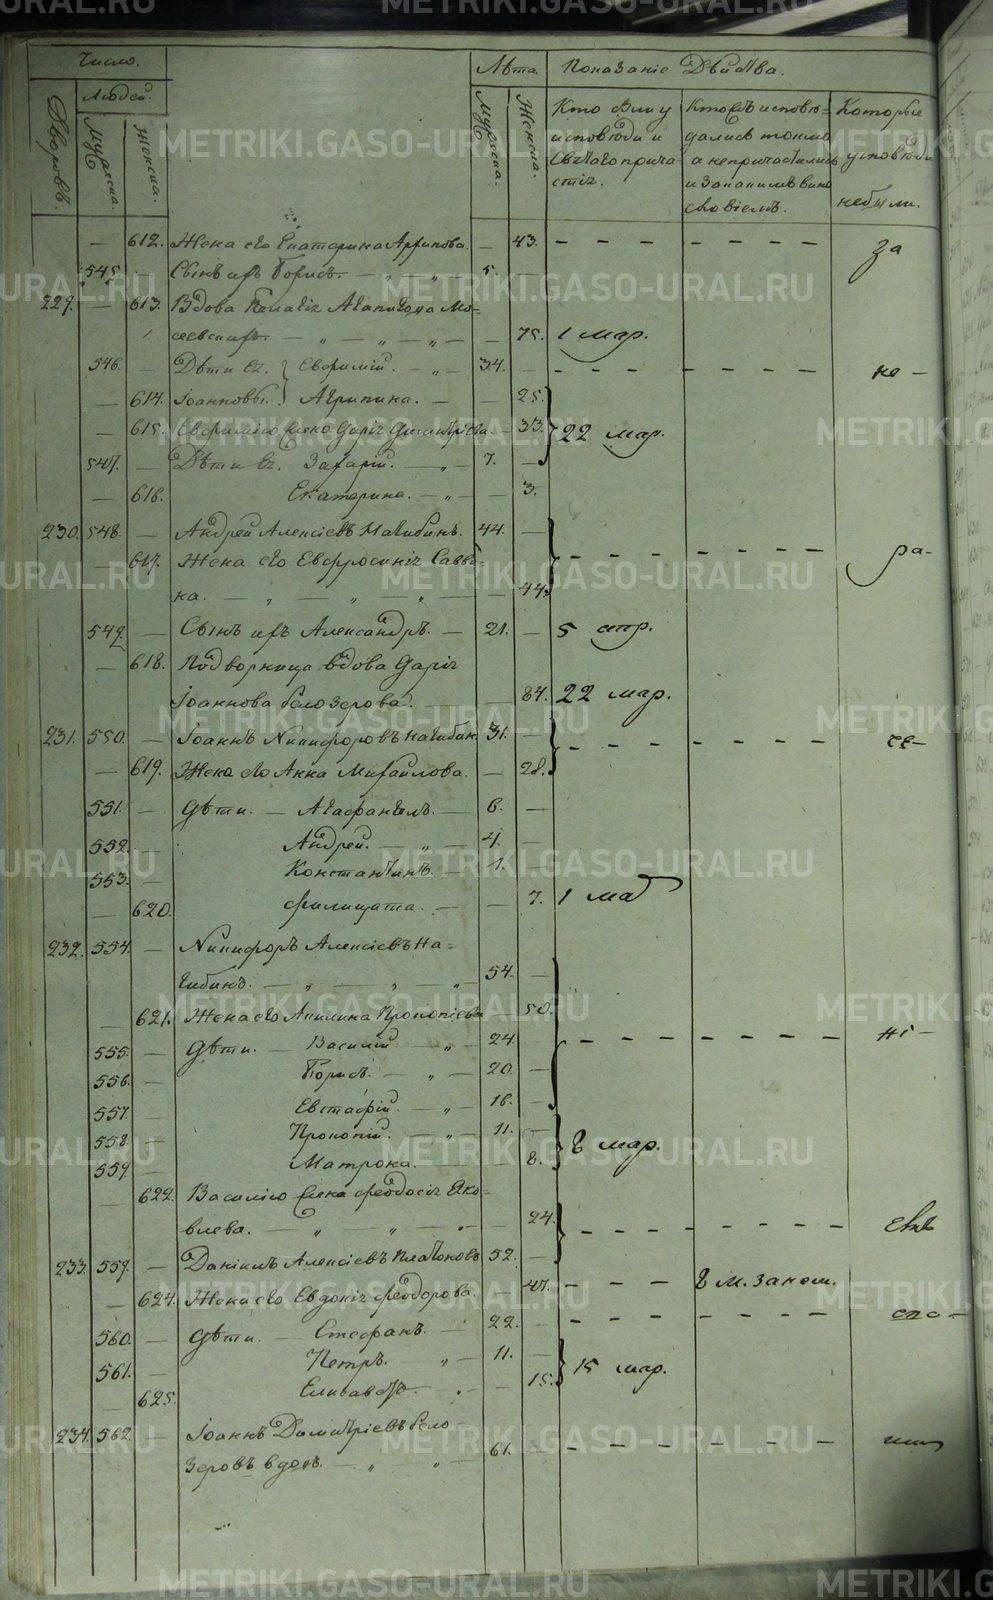 METRIKI.GASO-URAL.RU
Число.
Лѣта.
Показаніе Дѣйства.
Дворовъ.
Людей.
Мужска.
Женска.
Мужска.
Женска.
Кто были у
исповѣди и
Святаго прича-
стія.
Кто исповѣ-
дались токмо
а не причастились
и за каким вино
словіемъ.
Которые
у исповѣди
не были.
— 612. Жена его Екатерина — 43. — — — — — — — за
545. — Сынъ ихъ Борисъ. — „ — „ — 5. —
229. — 613. Вдова Агапитова Мо-
— „ — „ — „ — — 75. 1 мар.
546. — Дѣти ея Евфимій. — „ — 34. — — — — — — — — не —
— 614. Іоанновы. Агрипина. — — 25.
— 615. Евфимію жена Дарія Димитріева. — 33. 22 мар.
547. — Дѣти ея. Захарій. — „ — 7. —
— 616. Екатерина. — „ — — 3.
230. 548. — Андрей Алексіевъ Нагибинъ. 44. —
— 617. Жена его Евфросинія Савви- — — — — — — ра-
на. — „ — „ — „ — — 44.
549. — Сынъ ихъ Александръ. — 21. — 5 апр.
— 618. Подворница вдова Дарія
Іоаннова Белозерова. — — 84. 22 мар.
231. 550. — Іоаннъ Никифоровъ Нагибин 31. — — — — — — —
— 619. Жена его Анна Михайлова. — 28.
551. — Дѣти. — Агафангелъ. — 6. —
552. — Андрей. — „ — 4. —
553. — Константинъ. — 1. —
— 620. Филицата. — — 7. 1 мар
232. 554. — Никифоръ Алексіевъ На-
гибинъ. — „ — „ — „ — 54. —
— 621. Жена его Акилина Прокопіева — 50.
555. — Дѣти. — Василій. — „ — 24. — — — — — — — — ні —
556. — Борисъ. — „ — 20. —
557. — Евстафій. — „ — 16. —
558. — Прокопій. — „ — 11. — 8 мар.
559. — Матрона. — — 8.
— 622. Василію жена Феодосія Яко-
влева. — „ — „ — „ — — 24. — — — — — — —
233. 559. — Даніилъ Алексіевъ Платоновъ 52. —
— 624. Жена его Евдокія Феодорова. — 47. — — — 8 м. занем.
560. — Дѣти. — Стефанъ. — 22. — — — — — — — — спо —
561. — Петръ. „ — 11. — 15 мар.
— 625. Елисаветъ. — — 15.
234. 562. — Іоаннъ Димитріевъ Бело
зеровъ вдовъ. — „ — „ — 61. — — — — — — — —